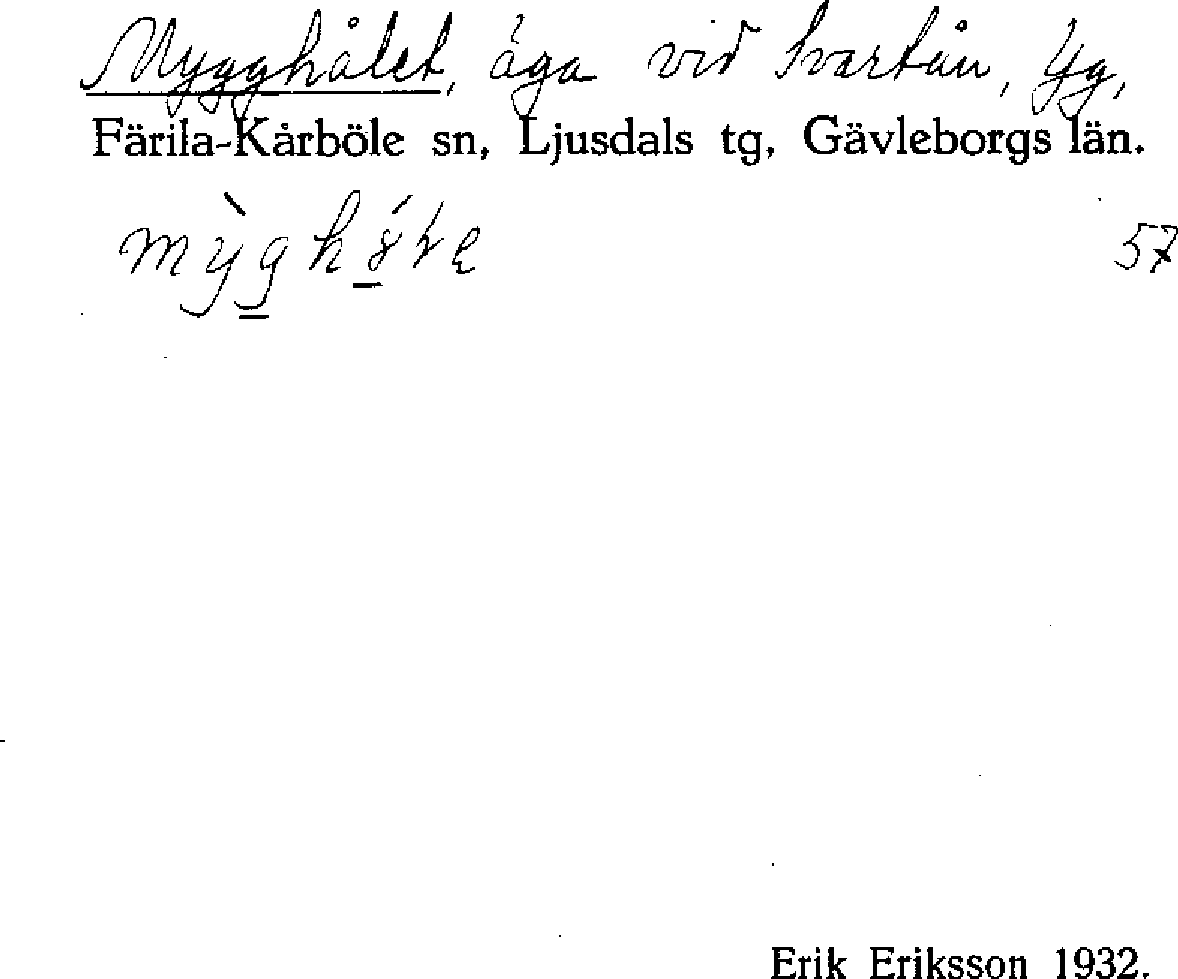 Mygghålet, äga vid Svartån, Yg,
Färila-Kårböle sn, Ljusdals tg, Gävleborgs län.
57
Erik Eriksson 1932.